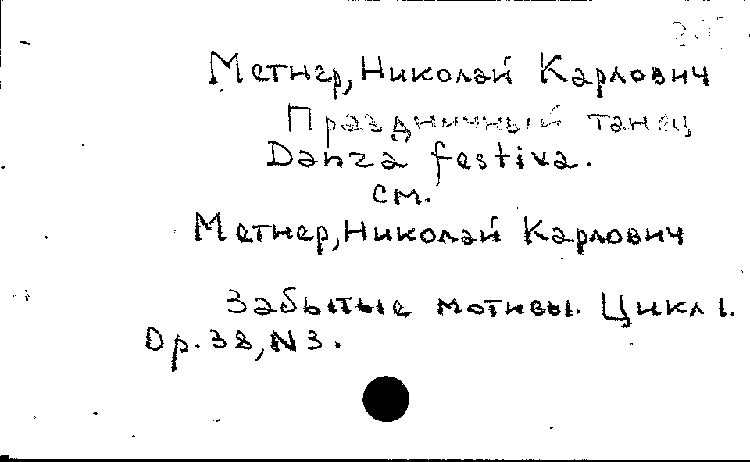 Метнер, Николай Карлович
Праздничный танец
Danza festiva.
см.
Метнер, Николай Карлович
Забытые мотивы. Цикл I.
Op. 38, N 3.